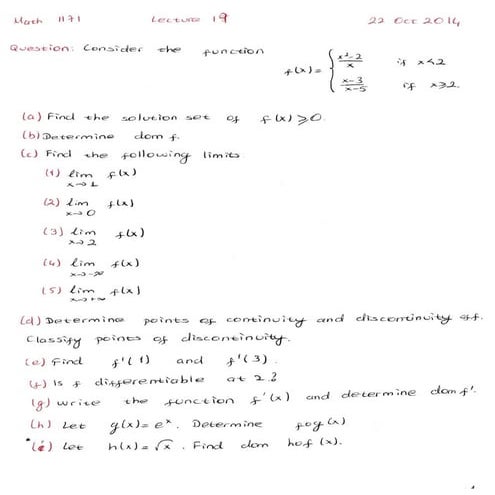 Math 1171 Lecture 19 22 Oct 2014
Question: Consider the function f(x) = { x²-2/x if x<2
x-3/x-5 if x≥2.
(a) Find the solution set of f(x)≥0.
(b) Determine dom f.
(c) Find the following limits
(1) lim x→1 f(x)
(2) lim x→0 f(x)
(3) lim x→2 f(x)
(4) lim x→-∞ f(x)
(5) lim x→+∞ f(x)
(d) Determine points of continuity and discontinuity of f.
Classify points of discontinuity.
(e) Find f'(1) and f'(3).
(f) Is f differentiable at 2?
(g) Write the function f'(x) and determine dom f'.
(h) Let g(x)=eˣ. Determine fog(x)
*(i) Let h(x)=√x. Find dom hof(x).